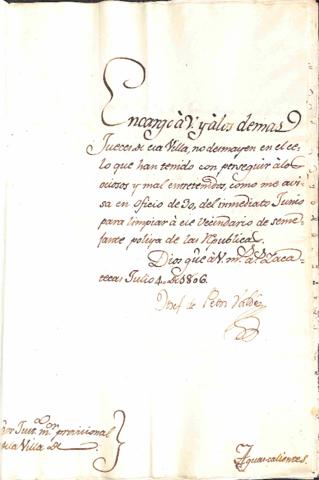 Encargo à V. y à los demas
Jueces de esa Villa, no desmayen en el ce-
lo que han tenido con perseguir àlos
ociosos y mal entretenidos, como me avi-
sa en oficio de 20, del inmediato Junio
para limpiar à ese Vecindario de seme-
jante poliya de las Republicas.
Dios gue à V. ms. as. Zaca-
tecas Julio 4, de 1806.
de
or Just. mor. provisional
la Villa de
Aguascalientes.